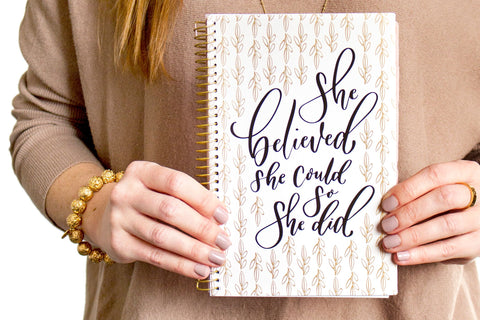 She
believed
she could
so
she did